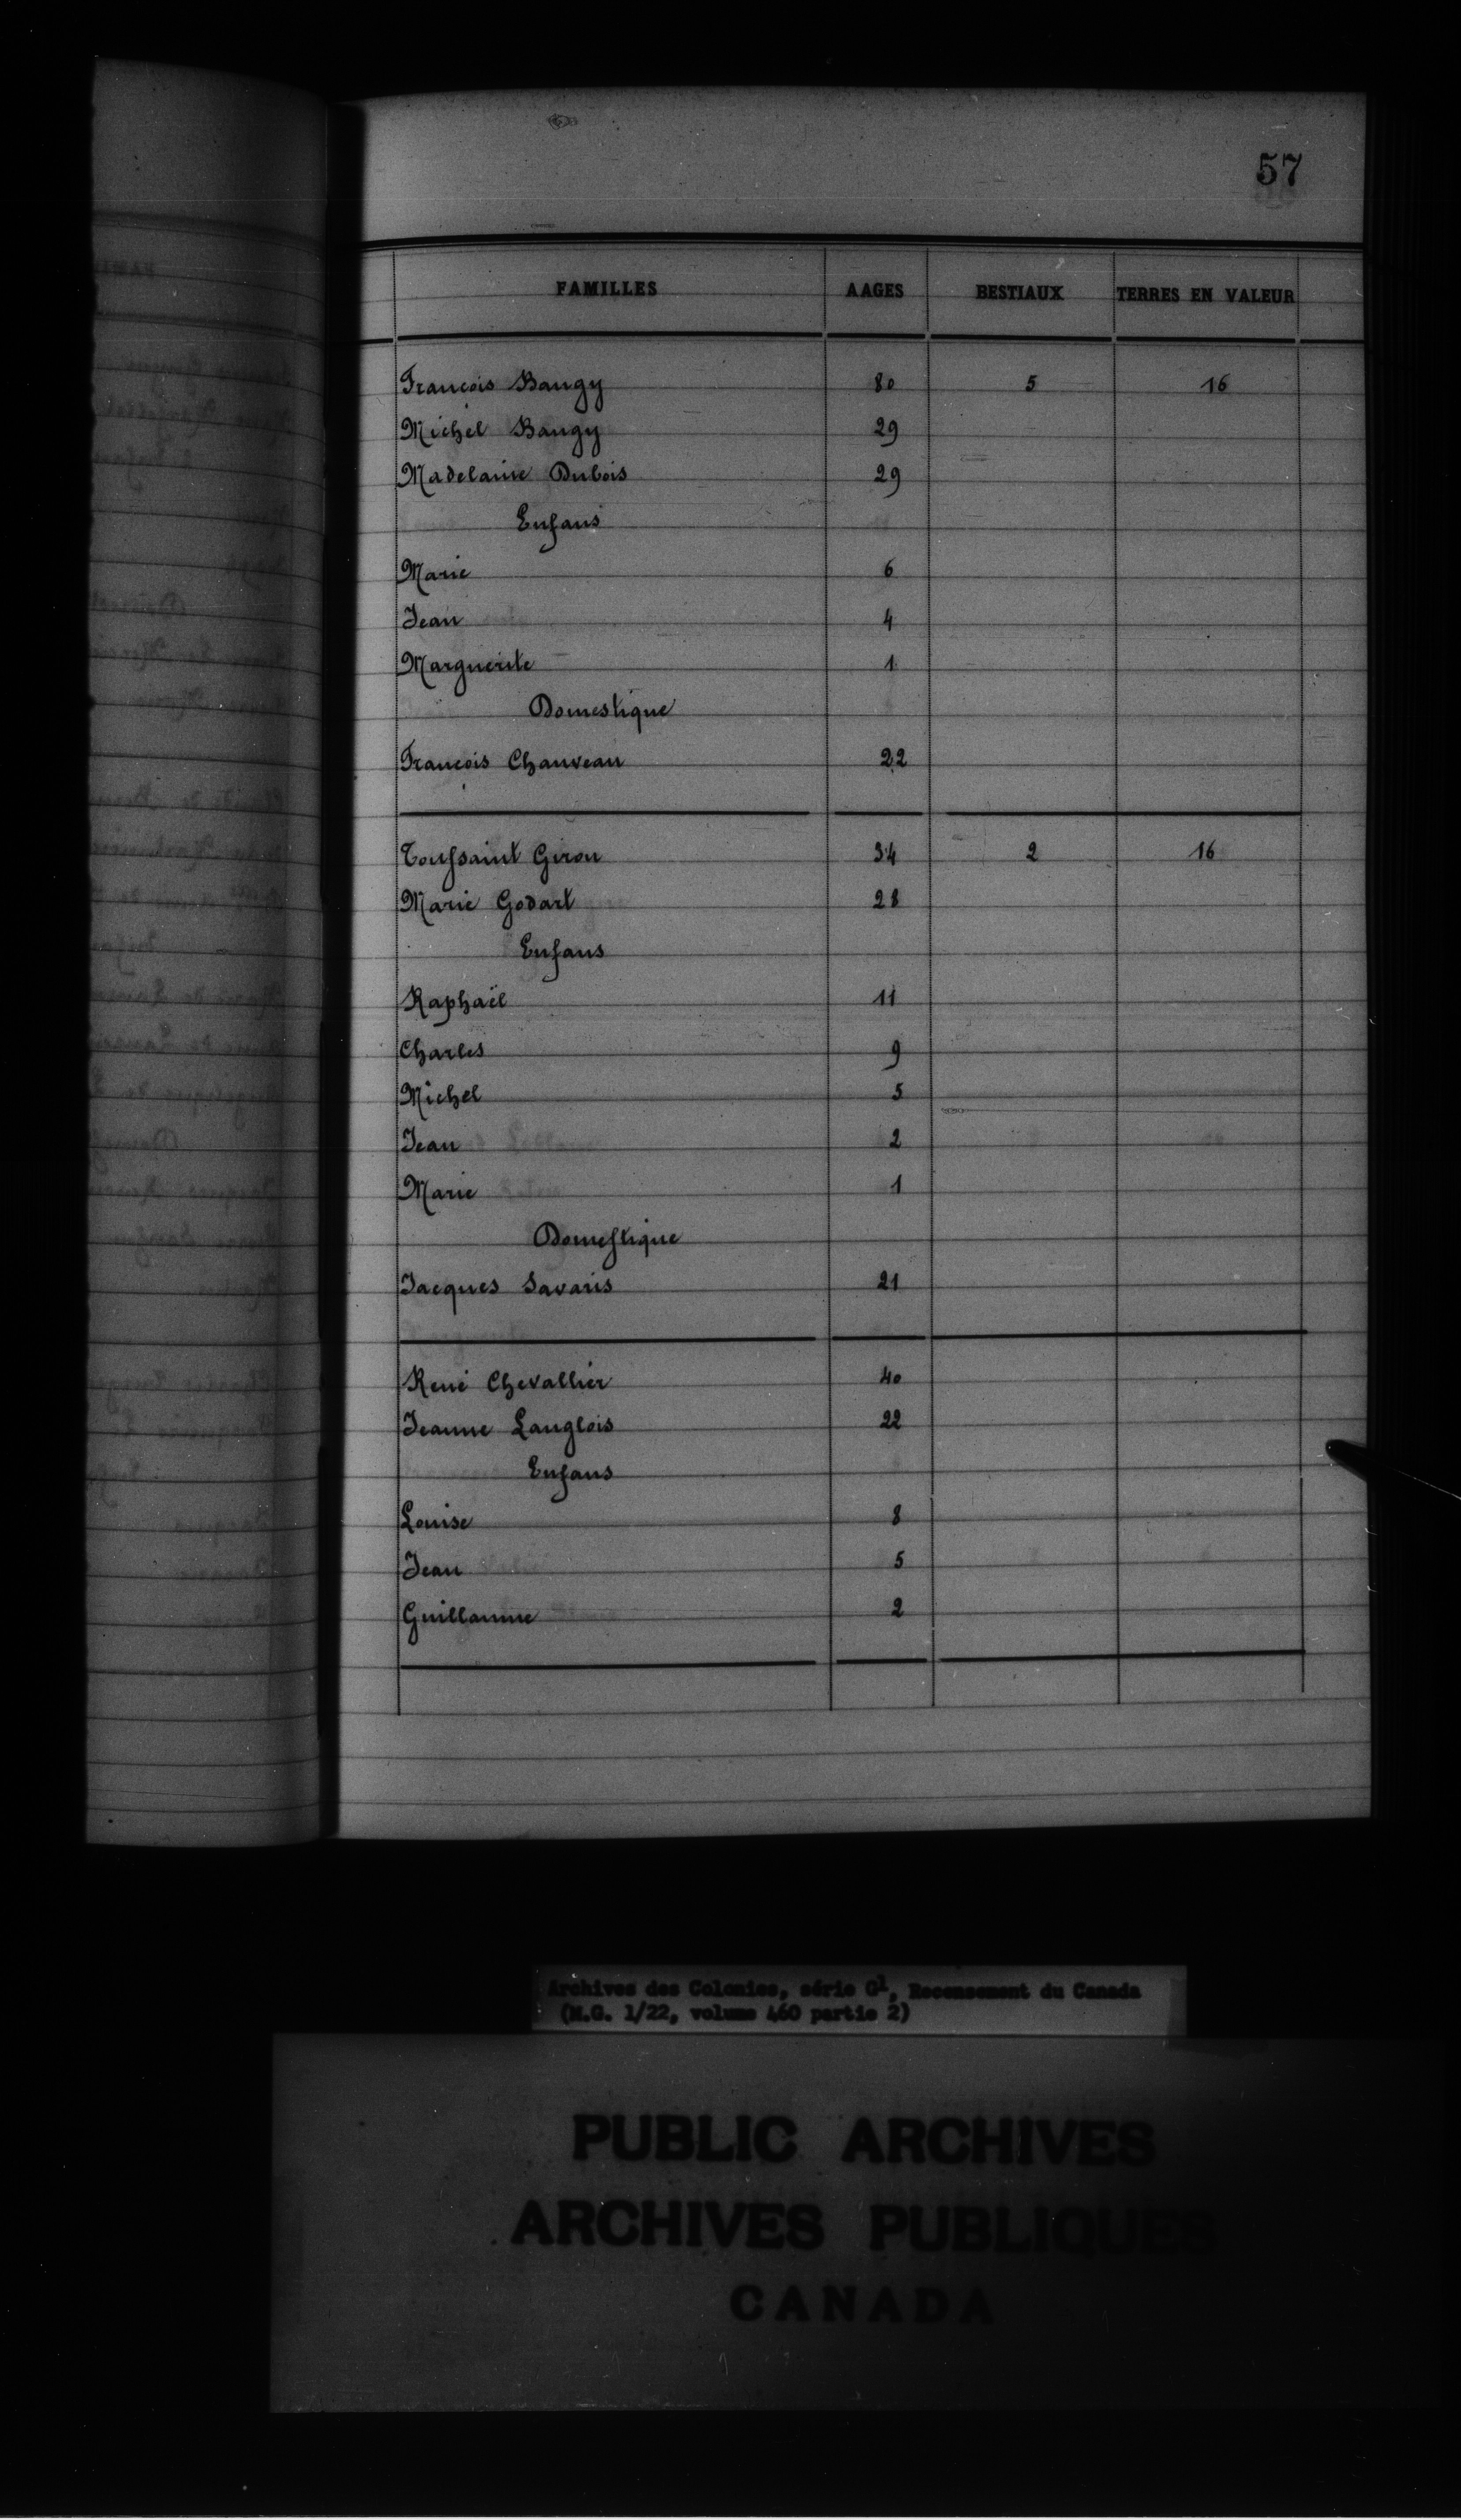 57
FAMILLES AAGES BESTIAUX TERRES EN VALEUR
Francois Baugy 80 5 16
Michel Baugy 29
Madelaine Dubois 29
Enfans
Marie 6
Jean 4
Marguerite 1
Domestique
Francois Chauveau 22
Toussaint Giron 34 2 16
Marie Godart 28
Enfans
Raphaël 11
Charles 9
Michel 5
Jean 2
Marie 1
Domestique
Jacques Savaris 21
René Chevallier 40
Jeanne Langlois 22
Enfans
Louise 8
Jean 5
Guillaume 2
Archives des Colonies, série G1, Recensement du Canada
(M.G. 1/22, volume 460 partie 2)
PUBLIC ARCHIVES
ARCHIVES PUBLIQUES
CANADA